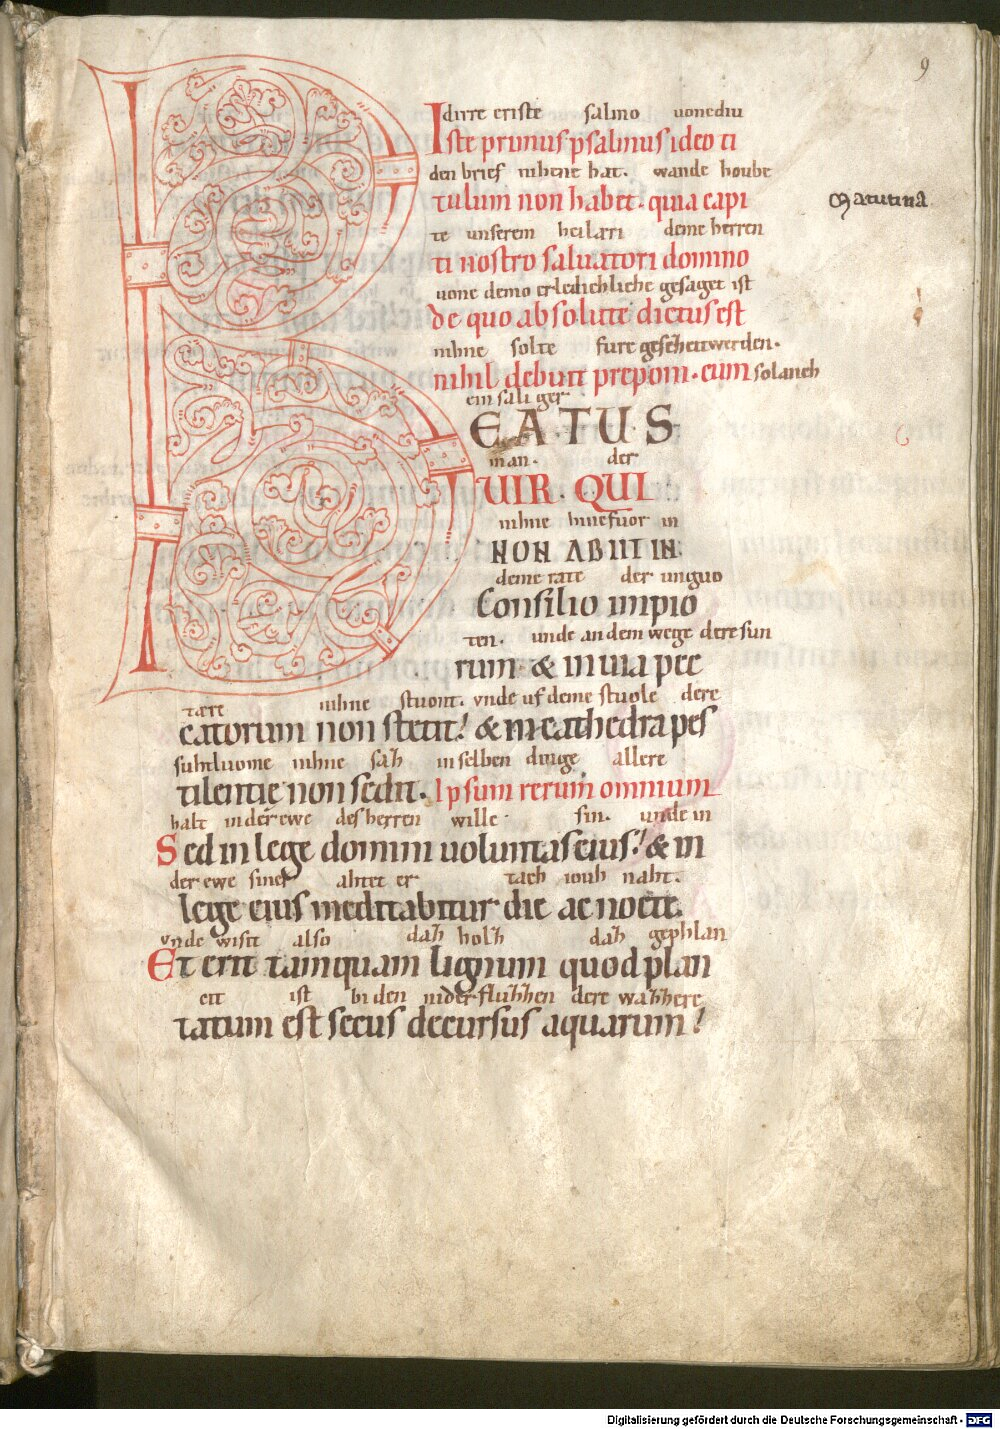 9
dirre eriste salmo uonediu
Iste primus psalmus ideo ti
den brief nihene hat. wande hoube
tulum non habet. quia capi
te unserem heilari deme herren
ti nostro saluatori domino
uone demo erledichliche gesaget ist
de quo absolute dictus est
nihne solte fure gesceit werden.
nihil debuit preponi. cum solaneh
ein sali ger
BEATUS
man. der
UIR. QUI
nihne hinefuor in
NON ABIIT IN
deme rate der unguo
Consilio impio
ten. unde an dem wege dere sun
rum. & in uia pec
tare nihne stuont. vnde uf deme stuole dere
catorum non stetit! & in cathedra pes
suhtluome nihne sah in selben dinge allere
tilentie non sedit. Ipsum rerum omnium
halt in der ewe des herren wille sin. unde in
Sed in lege domini uoluntas eius! & in
der ewe sines ahtet er tach iouh naht.
lege eius meditabitur die ac nocte.
vnde wisit also dah holh dah gephlan
Et erit tamquam lignum quod plan
cit ist bi den nider fluhhen dere wahhere
tatum est secus decursus aquarum!
Matutina
Digitalisierung gefördert durch die Deutsche Forschungsgemeinschaft - DFG